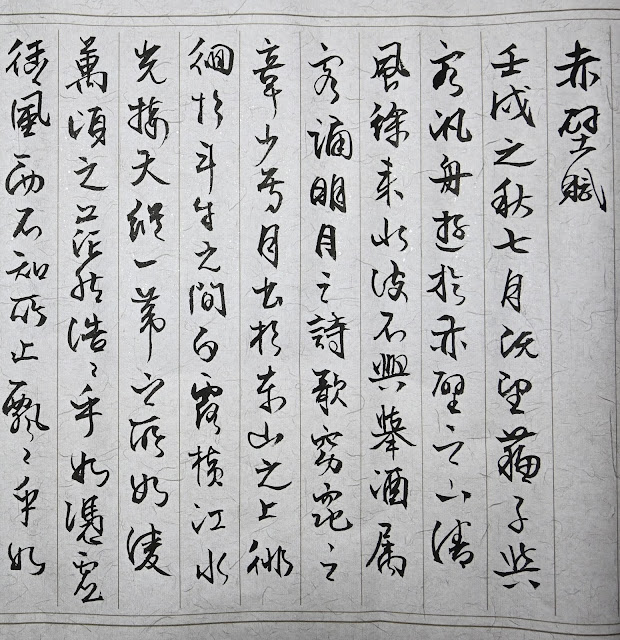 赤壁賦
壬戌之秋七月既望蘇子與
客汎舟遊於赤壁之下清
風徐来水波不興舉酒属
客誦明月之詩歌窈窕之
章少焉月出於東山之上徘
徊於斗牛之間白露横江水
光接天縱一葦之所如凌
萬頃之茫然浩〻乎如馮虚
御風而不知所止飄〻乎如